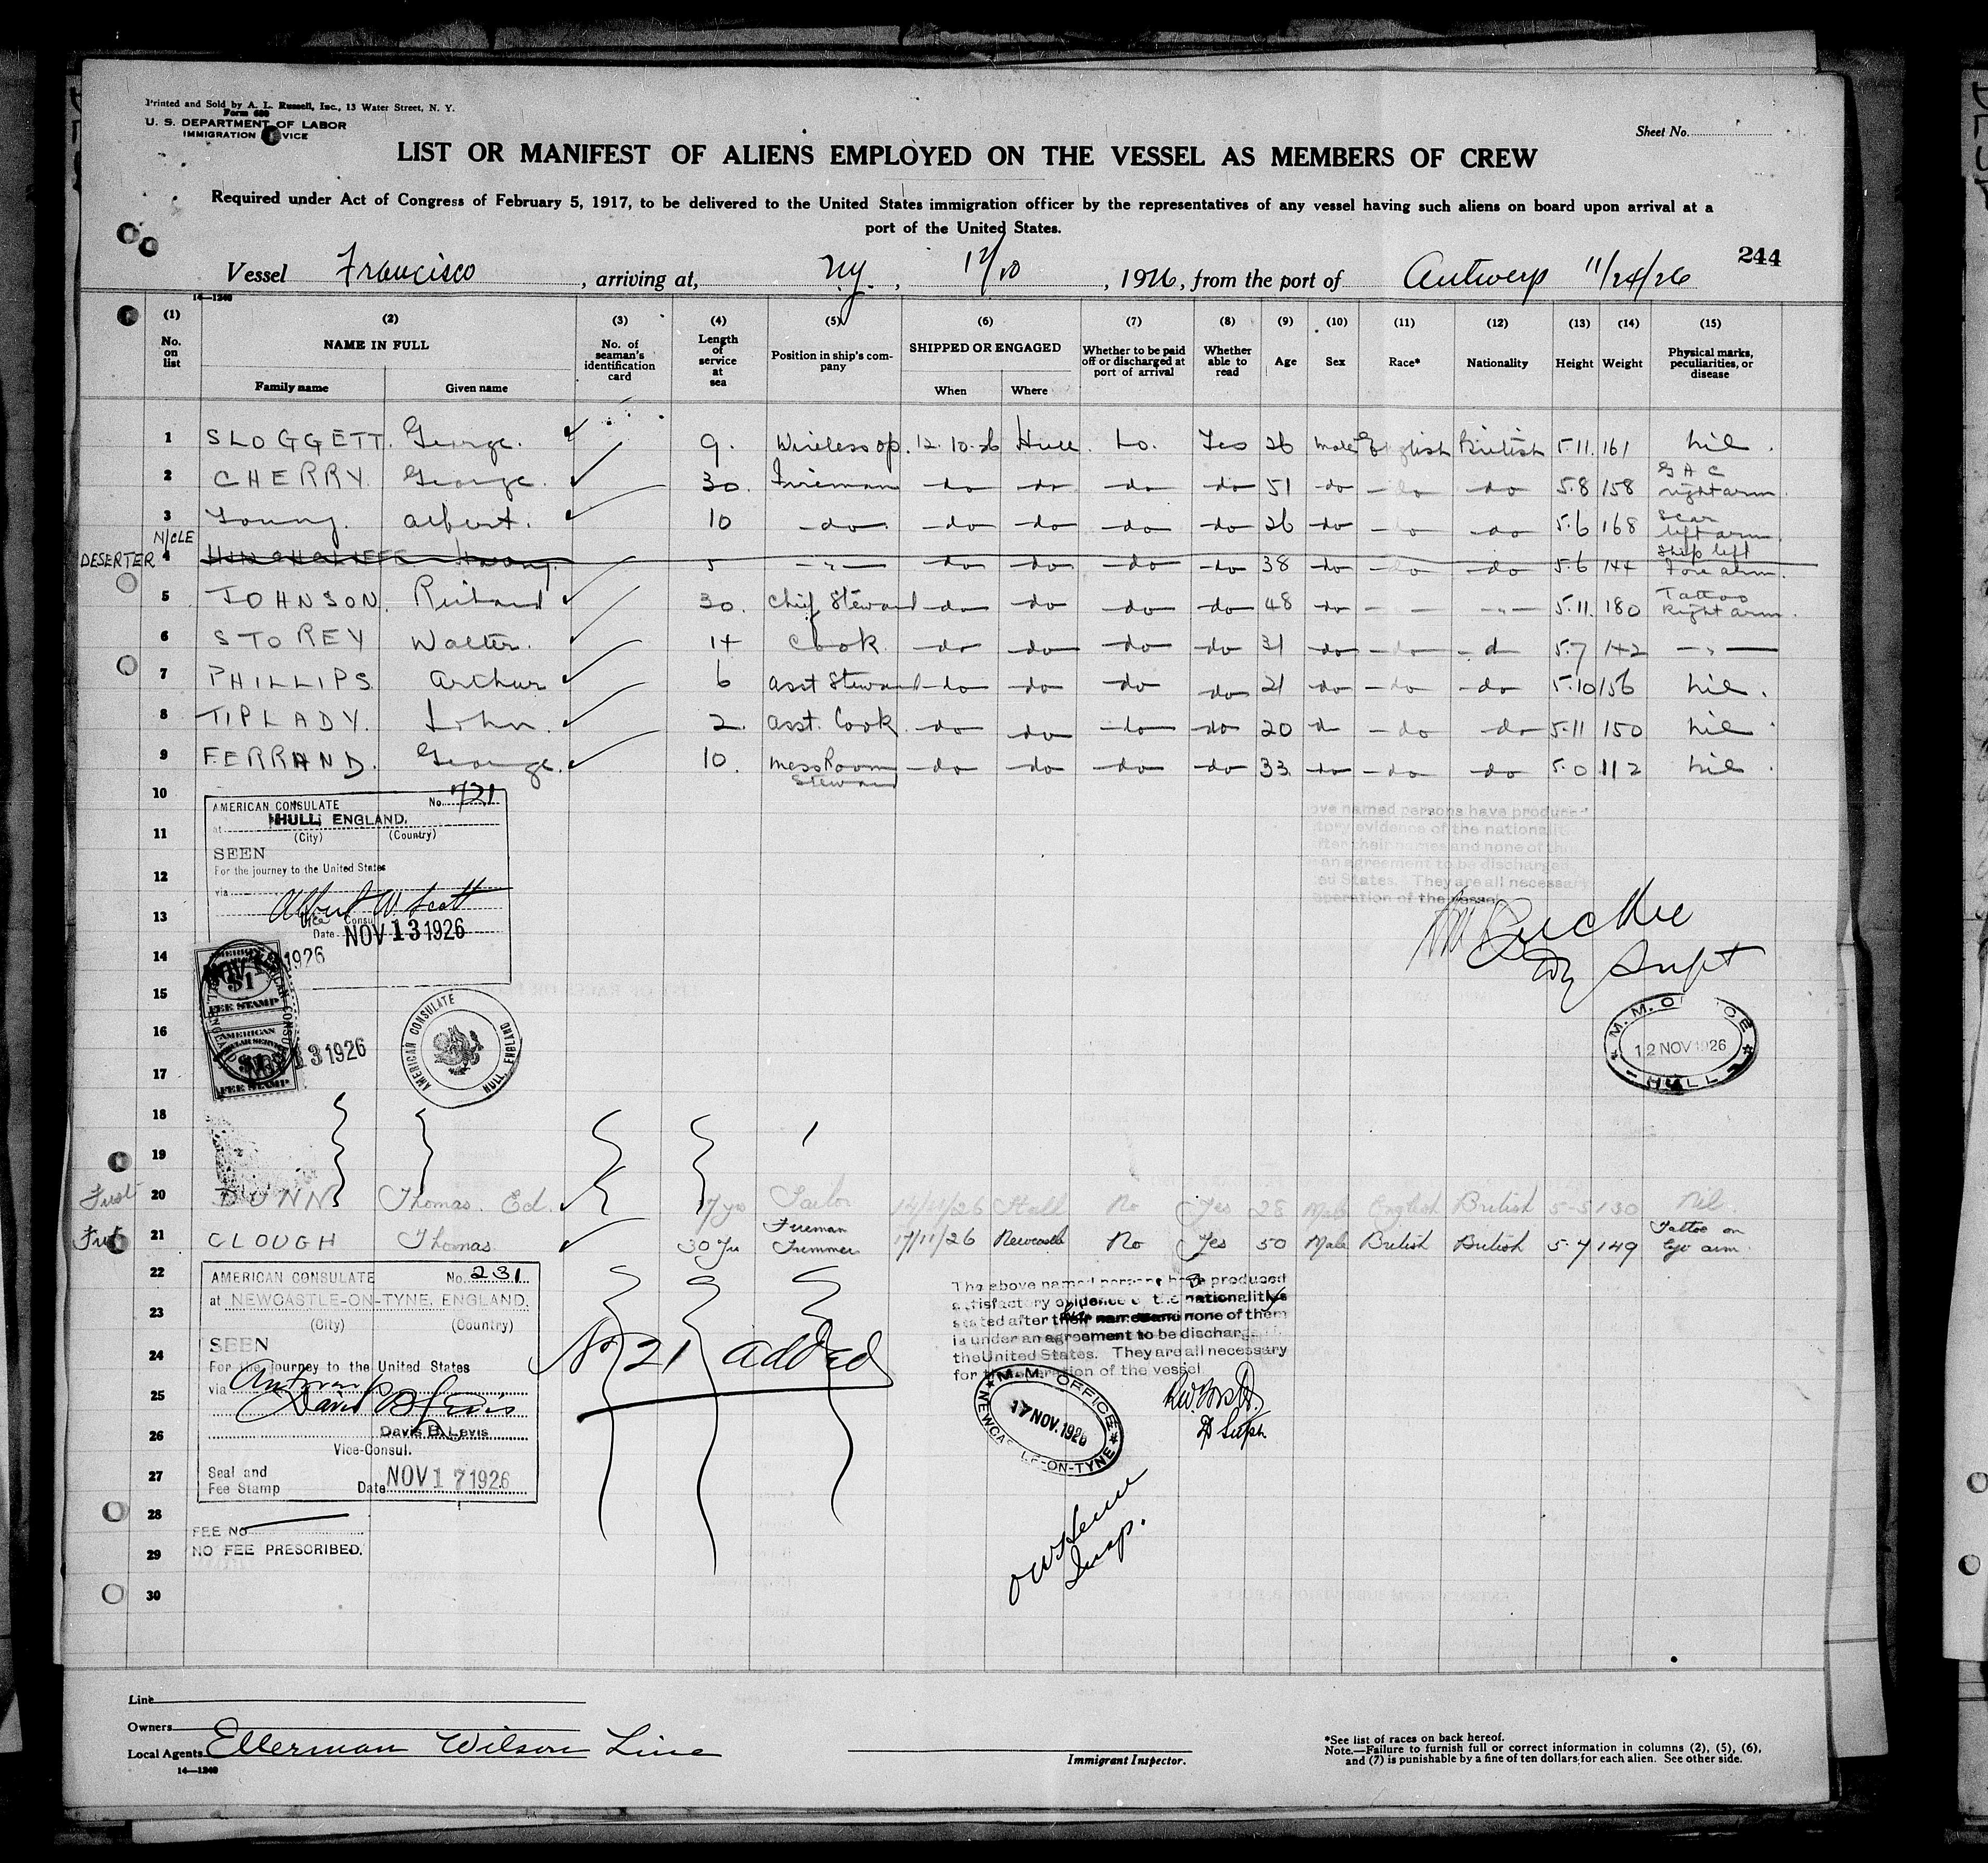 Printed and Sold by A. L. Russell, Inc., 13 Water Street, N. Y.
Form 680
U. S. DEPARTMENT OF LABOR
IMMIGRATION SERVICE
Sheet No.
LIST OR MANIFEST OF ALIENS EMPLOYED ON THE VESSEL AS MEMBERS OF CREW
Required under Act of Congress of February 5, 1917, to be delivered to the United States immigration officer by the representatives of any vessel having such aliens on board upon arrival at a
port of the United States.
244
Vessel Francisco, arriving at, N.Y., 12/10, 1926, from the port of Antwerp 11/24/26
14—1240
(1) No. on list
(2) NAME IN FULL Family name Given name
(3) No. of seaman's identification card
(4) Length of service at sea
(5) Position in ship's company
(6) SHIPPED OR ENGAGED When Where
(7) Whether to be paid off or discharged at port of arrival
(8) Whether able to read
(9) Age
(10) Sex
(11) Race*
(12) Nationality
(13) Height
(14) Weight
(15) Physical marks, peculiarities, or disease
1 SLOGGETT. George. 9. Wireless op. 12.10.26 Hull No. Yes 26 male English British 5.11. 161 Nil.
2 CHERRY George. 30. Fireman do do do do 51 do do do 5.8 158 G A C right arm.
3 Young. Albert. 10 do do do do do 26 do do do 5.6 168 Scar left arm.
N/CLE
DESERTER 4 5 —"— do do do do 38 do do do 5.6 144 left fore arm.
5 JOHNSON. Richard 30. Chief Steward do do do do 48 do — —"— 5.11. 180 Tattoo Right arm.
6 STOREY Walter. 14 Cook do do do do 31 do do d 5.7 142 —"—
7 PHILLIPS Arthur 6 Asst Steward do do do do 21 do do do 5.10 156 Nil.
8 TIPLADY. John. 2. Asst. Cook do do do do 20 do do do 5.11 150 Nil
9 FERRAND. George. 10. Mess Room Steward do do do do 33 do do do 5.0 112 Nil.
10
11
12
13
14
15
16
17
18
19
AMERICAN CONSULATE No. 721
at HULL, ENGLAND.
(City) (Country)
SEEN
For the journey to the United States
via
Albert W. Scott
Vice Consul
Date NOV 13 1926
1926
$1
FEE STAMP
AMERICAN
$1
FEE STAMP
13 1926
AMERICAN CONSULATE HULL, ENGLAND
ove named persons have produce
tory evidence of the nationalit
fter their names and none of th
an agreement to be discharged
ed States. They are all necessary
operation of the vessel
Supt
M.M. OFFICE
12 NOV 1926
HULL
First 20 DUNN Thomas. Ed. 7 yrs Sailor Hull No Yes 28 Male English British 5-5 130 Nil.
First 21 CLOUGH Thomas 30 Yrs Fireman Trimmer 17/11/26 Newcastle No Yes 50 Male British British 5-7 149 Tattoo on arm.
22
23
24
25
26
27
28
29
30
AMERICAN CONSULATE No. 231
at NEWCASTLE-ON-TYNE, ENGLAND.
(City) (Country)
SEEN
For the journey to the United States
via Antwerp
Davis B. Levis
Davis B. Levis
Vice-Consul.
Seal and
Fee Stamp Date NOV 17 1926
FEE No
NO FEE PRESCRIBED.
No 21 added
The above named person has produced
satisfactory evidence of the nationality
stated after their names and none of them
is under an agreement to be discharg
the United States. They are all necessary
for the operation of the vessel
M.M. OFFICE
17 NOV. 1926
NEWCASTLE-ON-TYNE
Insp.
Line
Owners
Local Agents Ellerman Wilson Line
14—1240
Immigrant Inspector.
*See list of races on back hereof.
Note.—Failure to furnish full or correct information in columns (2), (5), (6),
and (7) is punishable by a fine of ten dollars for each alien. See other side.